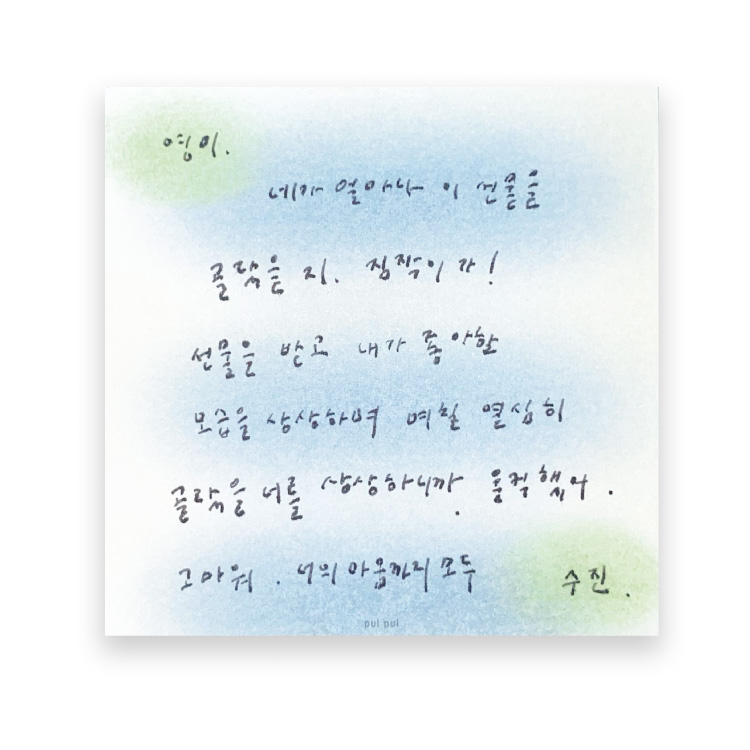 영이.
네가 얼마나 이 선물을
골랐을 지. 짐작이 가!
선물을 받고 내가 좋아할
모습을 상상하며 며칠 열심히
골랐을 너를 상상하니까, 울컥했어.
고마워. 너의 마음까지 모두
수진.
pul pul